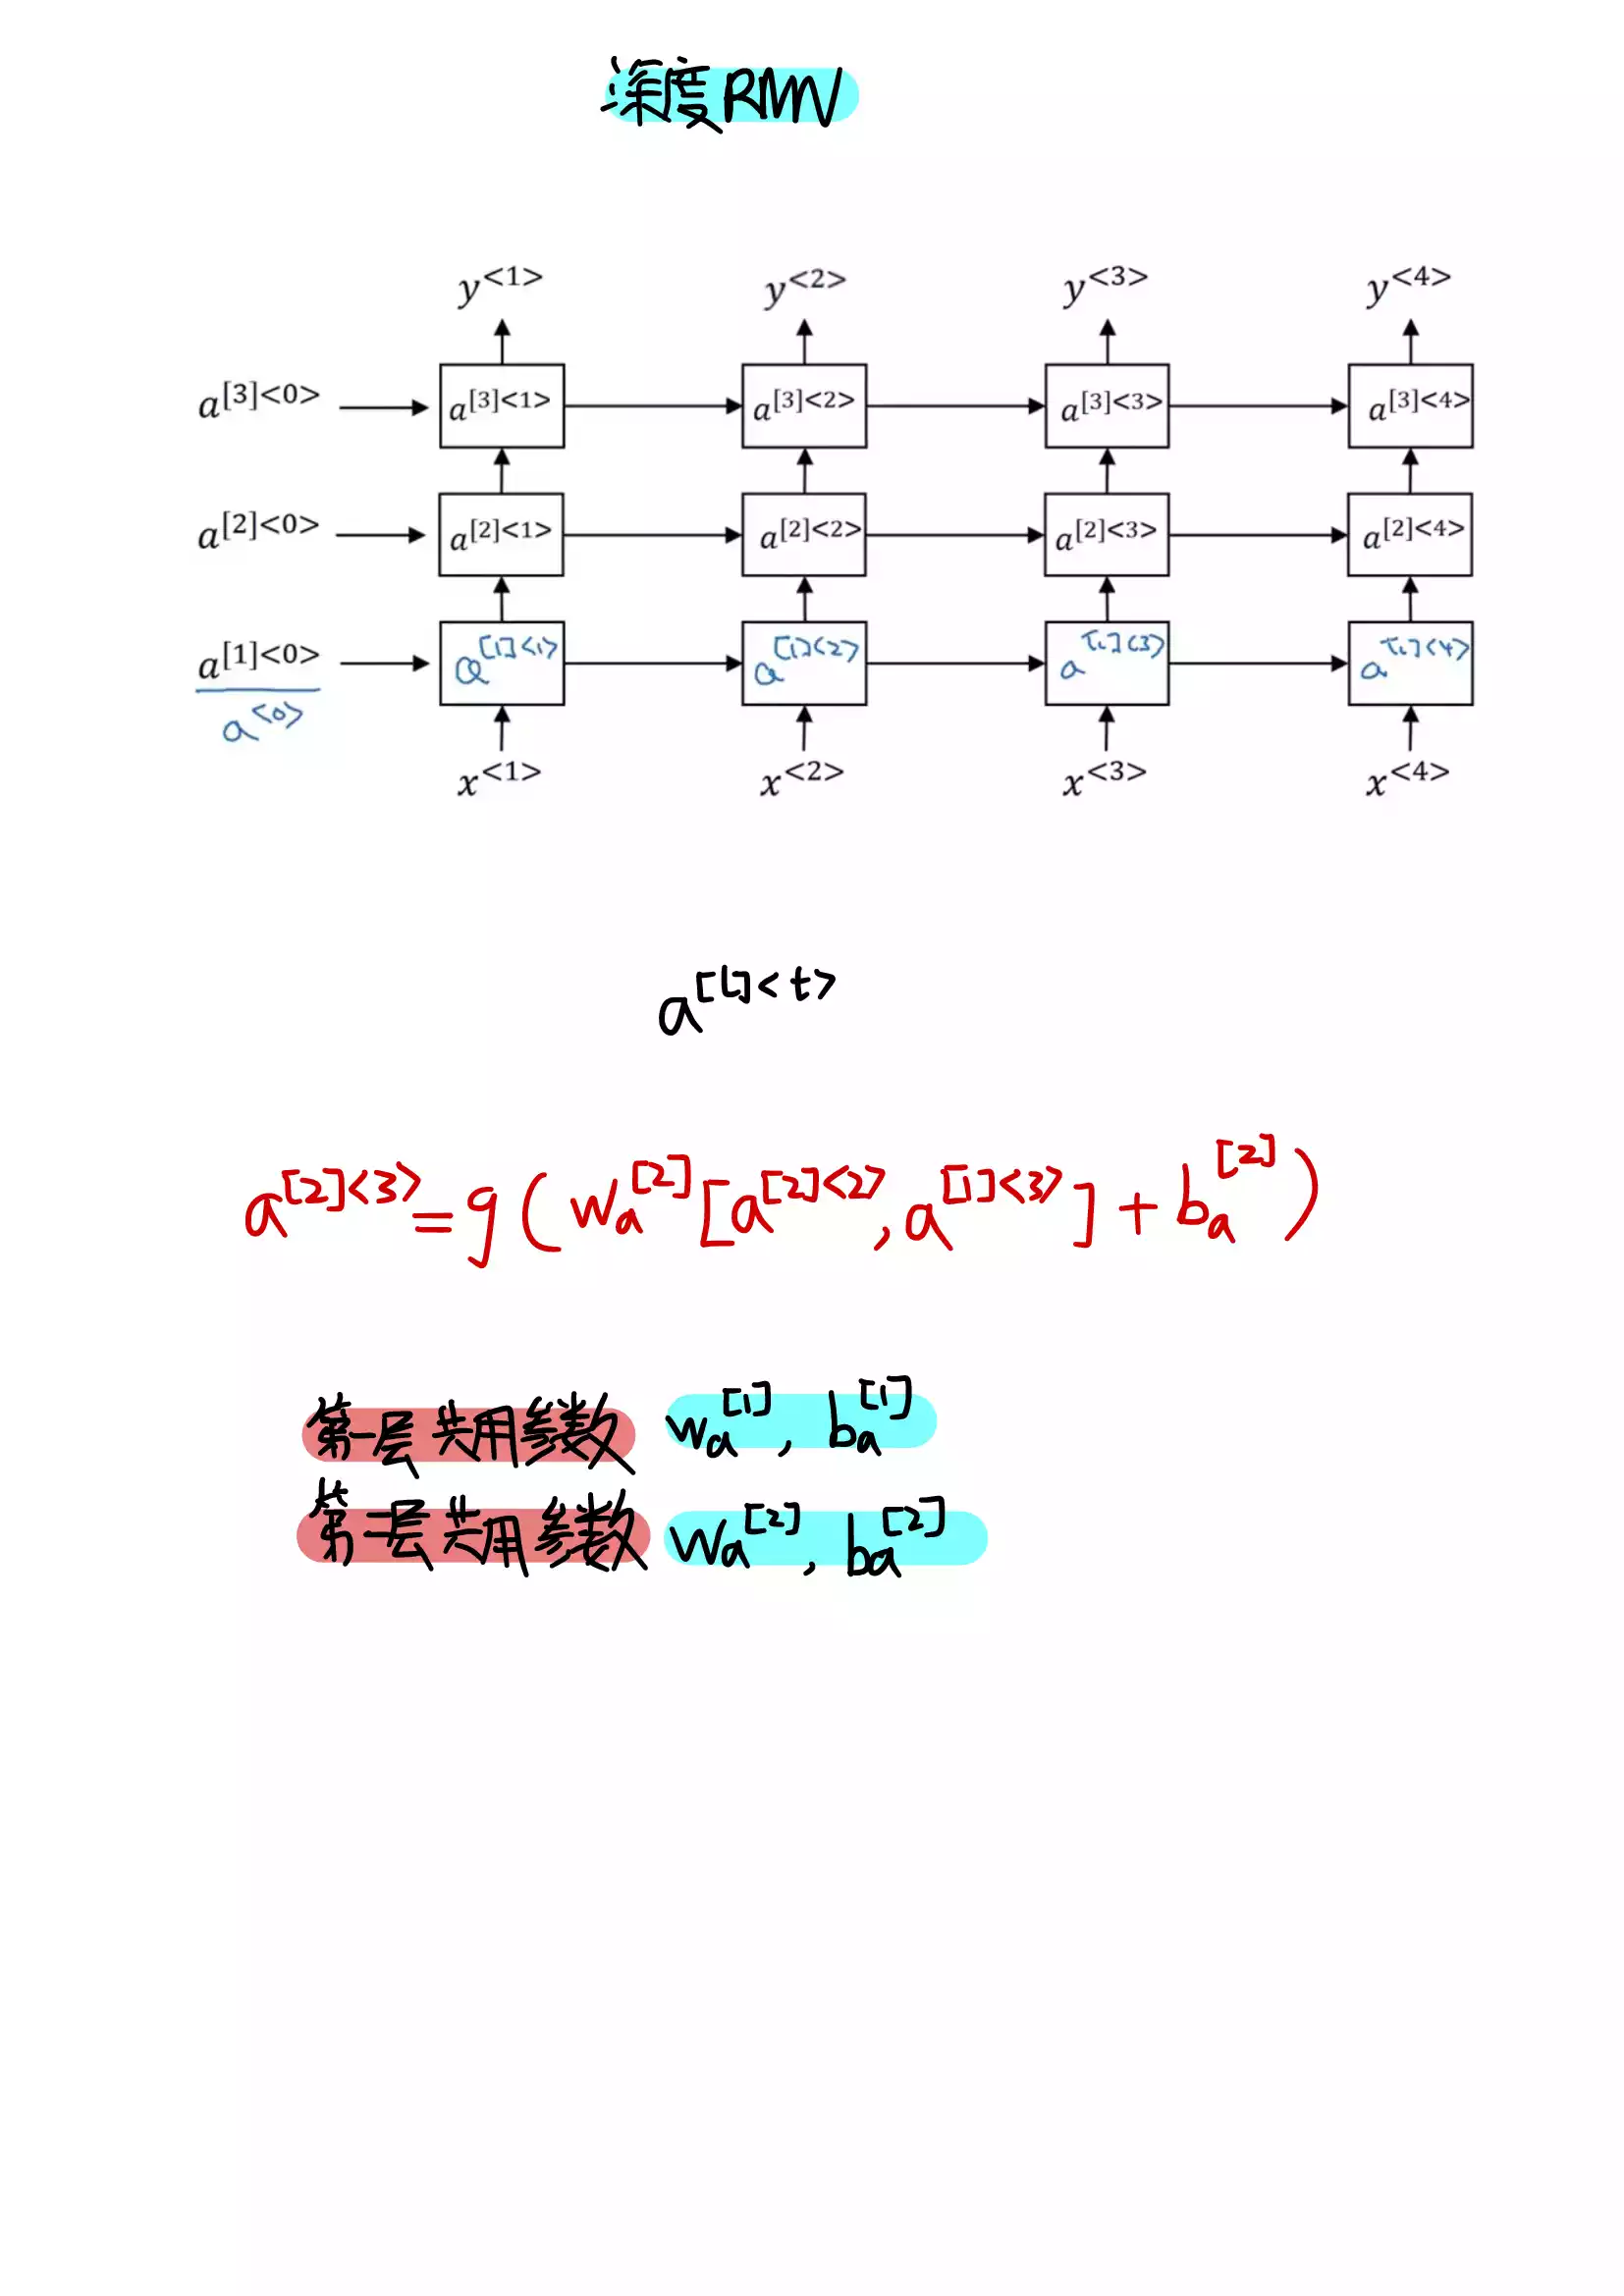 深度RNN
y<1> y<2> y<3> y<4>
a[3]<0> a[3]<1> a[3]<2> a[3]<3> a[3]<4>
a[2]<0> a[2]<1> a[2]<2> a[2]<3> a[2]<4>
a[1]<0> a[1]<1> a[1]<2> a[1]<3> a[1]<4>
a<0>
x<1> x<2> x<3> x<4>
a[l]<t>
a[2]<3>=g(Wa[2][a[2]<2>,a[1]<3>]+ba[2])
第一层共用参数 Wa[1], ba[1]
第二层共用参数 Wa[2], ba[2]